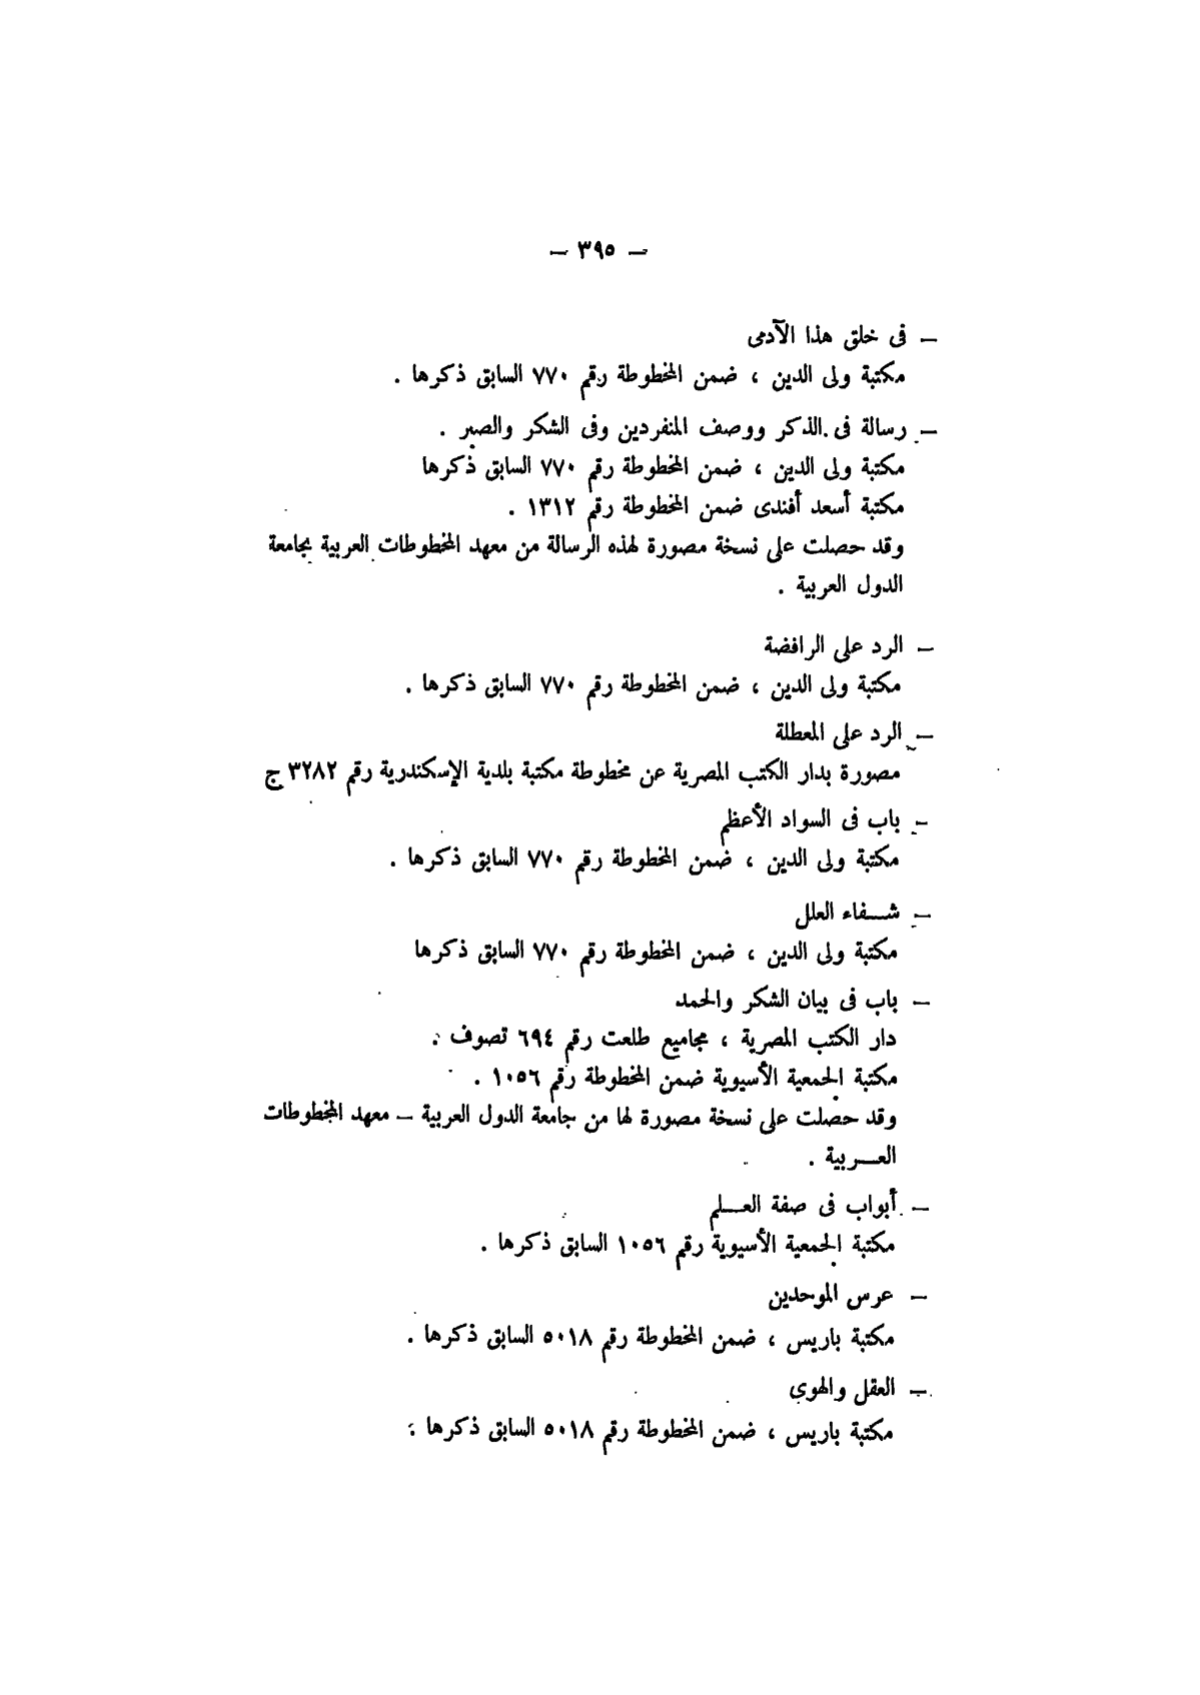 — ٣٩٥ —
— فى خلق هذا الآدمى
مكتبة ولى الدين ، ضمن المخطوطة رقم ٧٧٠ السابق ذكرها .
— رسالة فى الذكر ووصف المنفردين وفى الشكر والصبر .
مكتبة ولى الدين ، ضمن المخطوطة رقم ٧٧٠ السابق ذكرها
مكتبة أسعد أفندى ضمن المخطوطة رقم ١٣١٢ .
وقد حصلت على نسخة مصورة لهذه الرسالة من معهد المخطوطات العربية بجامعة
الدول العربية .
— الرد على الرافضة
مكتبة ولى الدين ، ضمن المخطوطة رقم ٧٧٠ السابق ذكرها .
— الرد على المعطلة
مصورة بدار الكتب المصرية عن مخطوطة مكتبة بلدية الإسكندرية رقم ٣٢٨٢ ج
— باب فى السواد الأعظم
مكتبة ولى الدين ، ضمن المخطوطة رقم ٧٧٠ السابق ذكرها .
— شـــفاء العلل
مكتبة ولى الدين ، ضمن المخطوطة رقم ٧٧٠ السابق ذكرها
— باب فى بيان الشكر والحمد
دار الكتب المصرية ، مجاميع طلعت رقم ٦٩٤ تصوف .
مكتبة الجمعية الأسيوية ضمن المخطوطة رقم ١٠٥٦ .
وقد حصلت على نسخة مصورة لها من جامعة الدول العربية — معهد المخطوطات
العـــربية .
— أبواب فى صفة العـــلم
مكتبة الجمعية الأسيوية رقم ١٠٥٦ السابق ذكرها .
— عرس الموحدين
مكتبة باريس ، ضمن المخطوطة رقم ٥٠١٨ السابق ذكرها .
— العقل والهوى
مكتبة باريس ، ضمن المخطوطة رقم ٥٠١٨ السابق ذكرها .